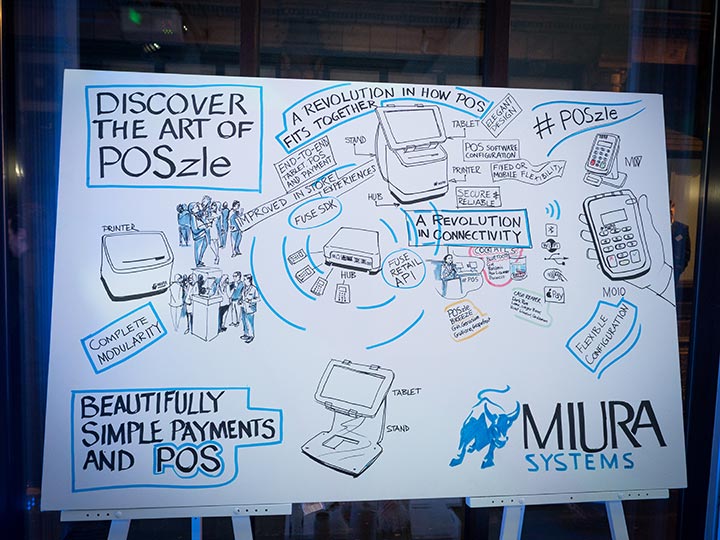 DISCOVER
THE ART OF
POSzle
A REVOLUTION IN HOW POS
FITS TOGETHER
ELEGANT
DESIGN
# POSzle
TABLET
STAND
END-TO-END
TABLET POS
AND PAYMENT
IMPROVED IN STORE
EXPERIENCES
POS SOFTWARE
CONFIGURATION
PRINTER
FIXED OR
MOBILE FLEXIBILITY
SECURE &
RELIABLE
HUB
FUSE SDK
A REVOLUTION
IN CONNECTIVITY
PRINTER
HUB
FUSE
RETAIL
API
COCKTAILS
POS
POSzle
BREEZE
Pay
M010
COMPLETE
MODULARITY
FLEXIBLE
CONFIGURATION
TABLET
STAND
BEAUTIFULLY
SIMPLE PAYMENTS
AND POS
MIURA
SYSTEMS